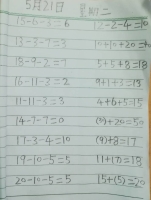 5月21日 星期二
15-6-3=6 12-2-4=10
13-3-7=3 10+10+20=40
18-9-2=7 5+5+8=18
16-11-3=2 9+1+3=13
11-11-3=3 4+6+5=15
14-7-7=0 20=50
17-3-4=10 (9)+8=17
19-10-5=5 11+(7)=18
20-10-5=5 15+(5)=20